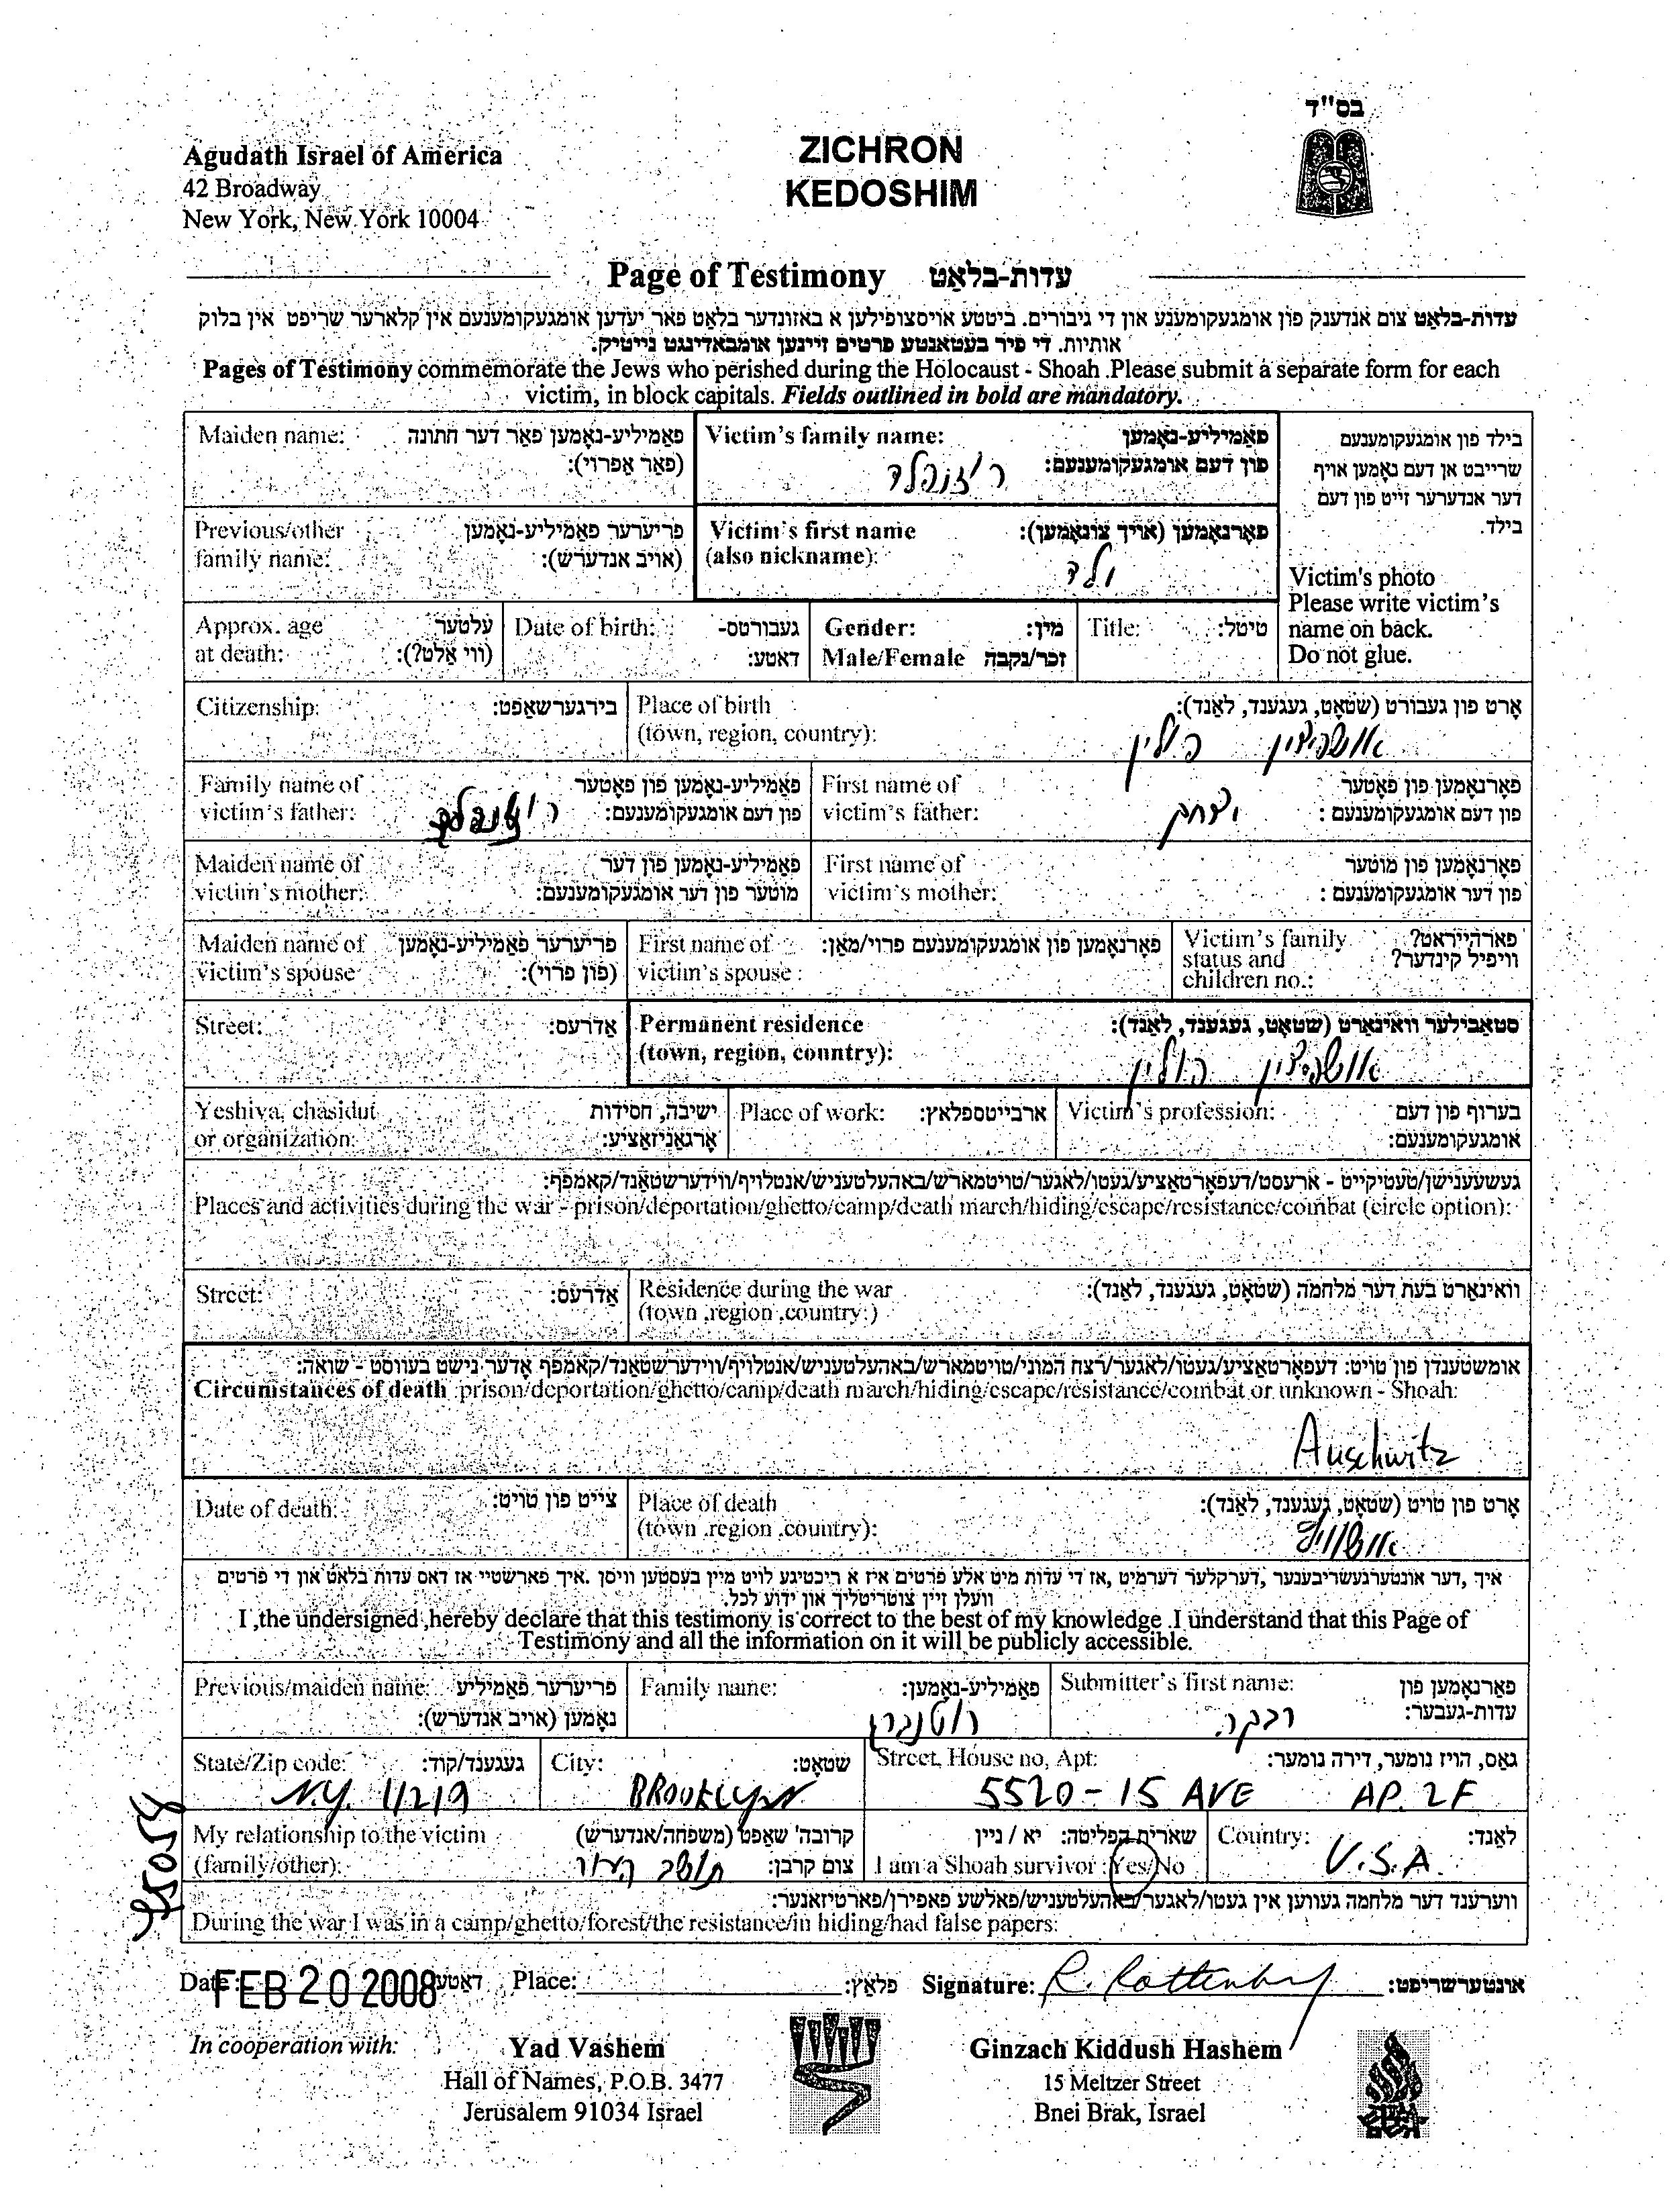 בס"ד
Agudath Israel of America
42 Broadway
New York, New York 10004
ZICHRON
KEDOSHIM
Page of Testimony עדות-בלאַט
עדות-בלאַט צום אנדענק פון אומגעקומענע און די גיבורים. ביטטע אויסצופילען א באזונדער בלאט פאר יעדען אומגעקומענעם אין קלארער שריפט אין בלוק
אותיות. די פיר בעטאנטע פרטים זיינען אומבאדינגט נייטיק.
Pages of Testimony commemorate the Jews who perished during the Holocaust - Shoah .Please submit a separate form for each
victim, in block capitals. Fields outlined in bold are mandatory.
Maiden name: פאַמיליע-נאָמען פאַר דער חתונה
(פאַר אַפרוי):
Victim's family name: פאַמיליע-נאָמען
פון דעם אומגעקומענעם:
בילד פון אומגעקומענעם
שרייבט אן דעם נאָמען אויף
דער אנדערער זייט פון דעם
בילד.
Previous/other פריערער פאַמיליע-נאָמען
family name: (אויב אנדערש):
Victim's first name פאָרנאָמען (אויך צונאָמען):
(also nickname):
ולד
Victim's photo
Please write victim's
name on back.
Do not glue.
Approx. age עלטער
at death: (ווי אַלט?):
Date of birth: געבורטס-
דאטע:
Gender: מין:
Male/Female זכר/נקבה
Title: טיטל:
Citizenship: בירגערשאַפט:
Place of birth אָרט פון געבורט (שטאָט, געגענד, לאַנד):
(town, region, country):
אושפיצין פולין
Family name of פאַמיליע-נאָמען פון פאָטער
victim's father: פון דעם אומגעקומענעם:
First name of פאָרנאָמען פון פאָטער
victim's father: פון דעם אומגעקומענעם :
יצחק
Maiden name of פאַמיליע-נאָמען פון דער
victim's mother: מוטער פון דער אומגעקומענעם:
First name of פאָרנאָמען פון מוטער
victim's mother: פון דער אומגעקומענעם :
Maiden name of פריערער פאַמיליע-נאָמען
victim's spouse (פון פרוי):
First name of פאָרנאָמען פון אומגעקומענעם פרוי/מאַן:
victim's spouse :
Victim's family פארהייראט?
status and וויפיל קינדער?
children no.:
Street: אַדרעס:
Permanent residence סטאַבילער וואוינאָרט (שטאָט, געגענד, לאַנד):
(town, region, country):
אושפיצין פולין
Yeshiva, chasidut ישיבה, חסידות
or organization: אָרגאַניזאַציע:
Place of work: ארבייטספלאץ:
Victim's profession: בערוף פון דעם
אומגעקומענעם:
געשעענישן/טעטיקייט - ארעסט/דעפאָרטאַציע/געטו/לאגער/טויטמארש/באהעלטעניש/אנטלויף/ווידערשטאַנד/קאמפף:
Places and activities during the war - prison/deportation/ghetto/camp/death march/hiding/escape/resistance/combat (circle option):
Street: אַדרעס:
Residence during the war וואוינארט בעת דער מלחמה (שטאָט, געגענד, לאַנד):
(town ,region ,country:)
אומשטענדן פון טויט: דעפאָרטאַציע/געטו/לאגער/רצח המוני/טויטמארש/באהעלטעניש/אנטלויף/ווידערשטאַנד/קאמפף אָדער נישט בעווסט - שואה:
Circumstances of death :prison/deportation/ghetto/camp/death march/hiding/escape/resistance/combat or unknown - Shoah:
Auschwitz
Date of death: צייט פון טויט:
Place of death אָרט פון טויט (שטאָט, געגענד, לאַנד):
(town ,region ,country):
אושוויץ
איך ,דער אונטערגעשריבענער ,דערקלער דערמיט ,אז די עדות מיט אלע פרטים איז א ריכטיגע לויט מיין בעסטען וויסן .איך פארשטיי אז דאס עדות בלאט און די פרטים
וועלן זיין צוטריטליך און ידוע לכל.
I ,the undersigned ,hereby declare that this testimony is correct to the best of my knowledge .I understand that this Page of
Testimony and all the information on it will be publicly accessible.
Previous/maiden name: פריערער פאַמיליע
נאָמען (אויב אנדערש):
Family name: פאַמיליע-נאָמען:
רוטנברג
Submitter's first name: פאָרנאָמען פון
עדות-געבער:
רבקה
State/Zip code: געגענד/קוד:
N.Y. 11219
City: שטאָט:
BROOKLYN
Street, House no, Apt: גאס, הויז נומער, דירה נומער:
5520-15 AVE AP. 2F
My relationship to the victim קרובה' שאפט (משפחה/אנדערש)
(family/other): צום קרבן:
תושב העיר
שארית הפליטה: יא / ניין
I am a Shoah survivor :Yes/No
Country: לאַנד:
U.S.A.
ווערענד דער מלחמה געווען אין געטו/לאגער/באהעלטעניש/פאלשע פאפירן/פארטיזאנער:
During the war I was in a camp/ghetto/forest/the resistance/in hiding/had false papers:
Date : FEB 20 2008 דאטע
Place: פלאַץ:
Signature: R. Rottenberg אונטערשריפט:
In cooperation with:
Yad Vashem
Hall of Names, P.O.B. 3477
Jerusalem 91034 Israel
Ginzach Kiddush Hashem
15 Meltzer Street
Bnei Brak, Israel